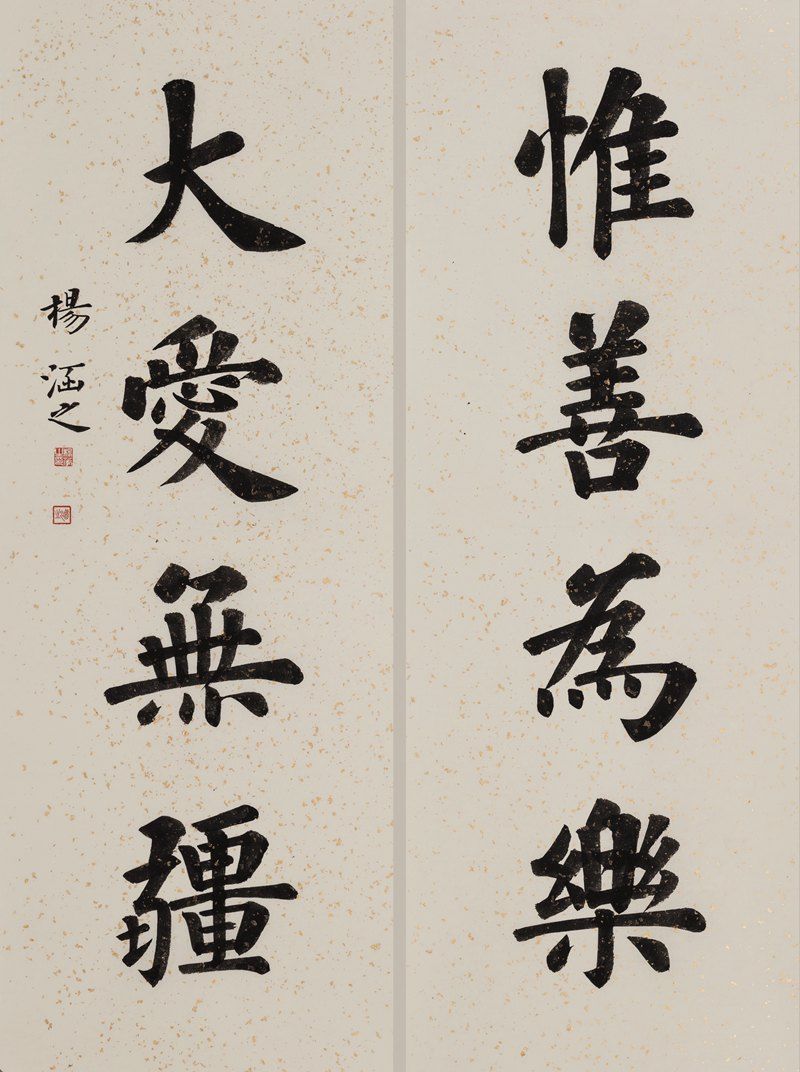 惟善為樂
大愛無疆
楊涵之